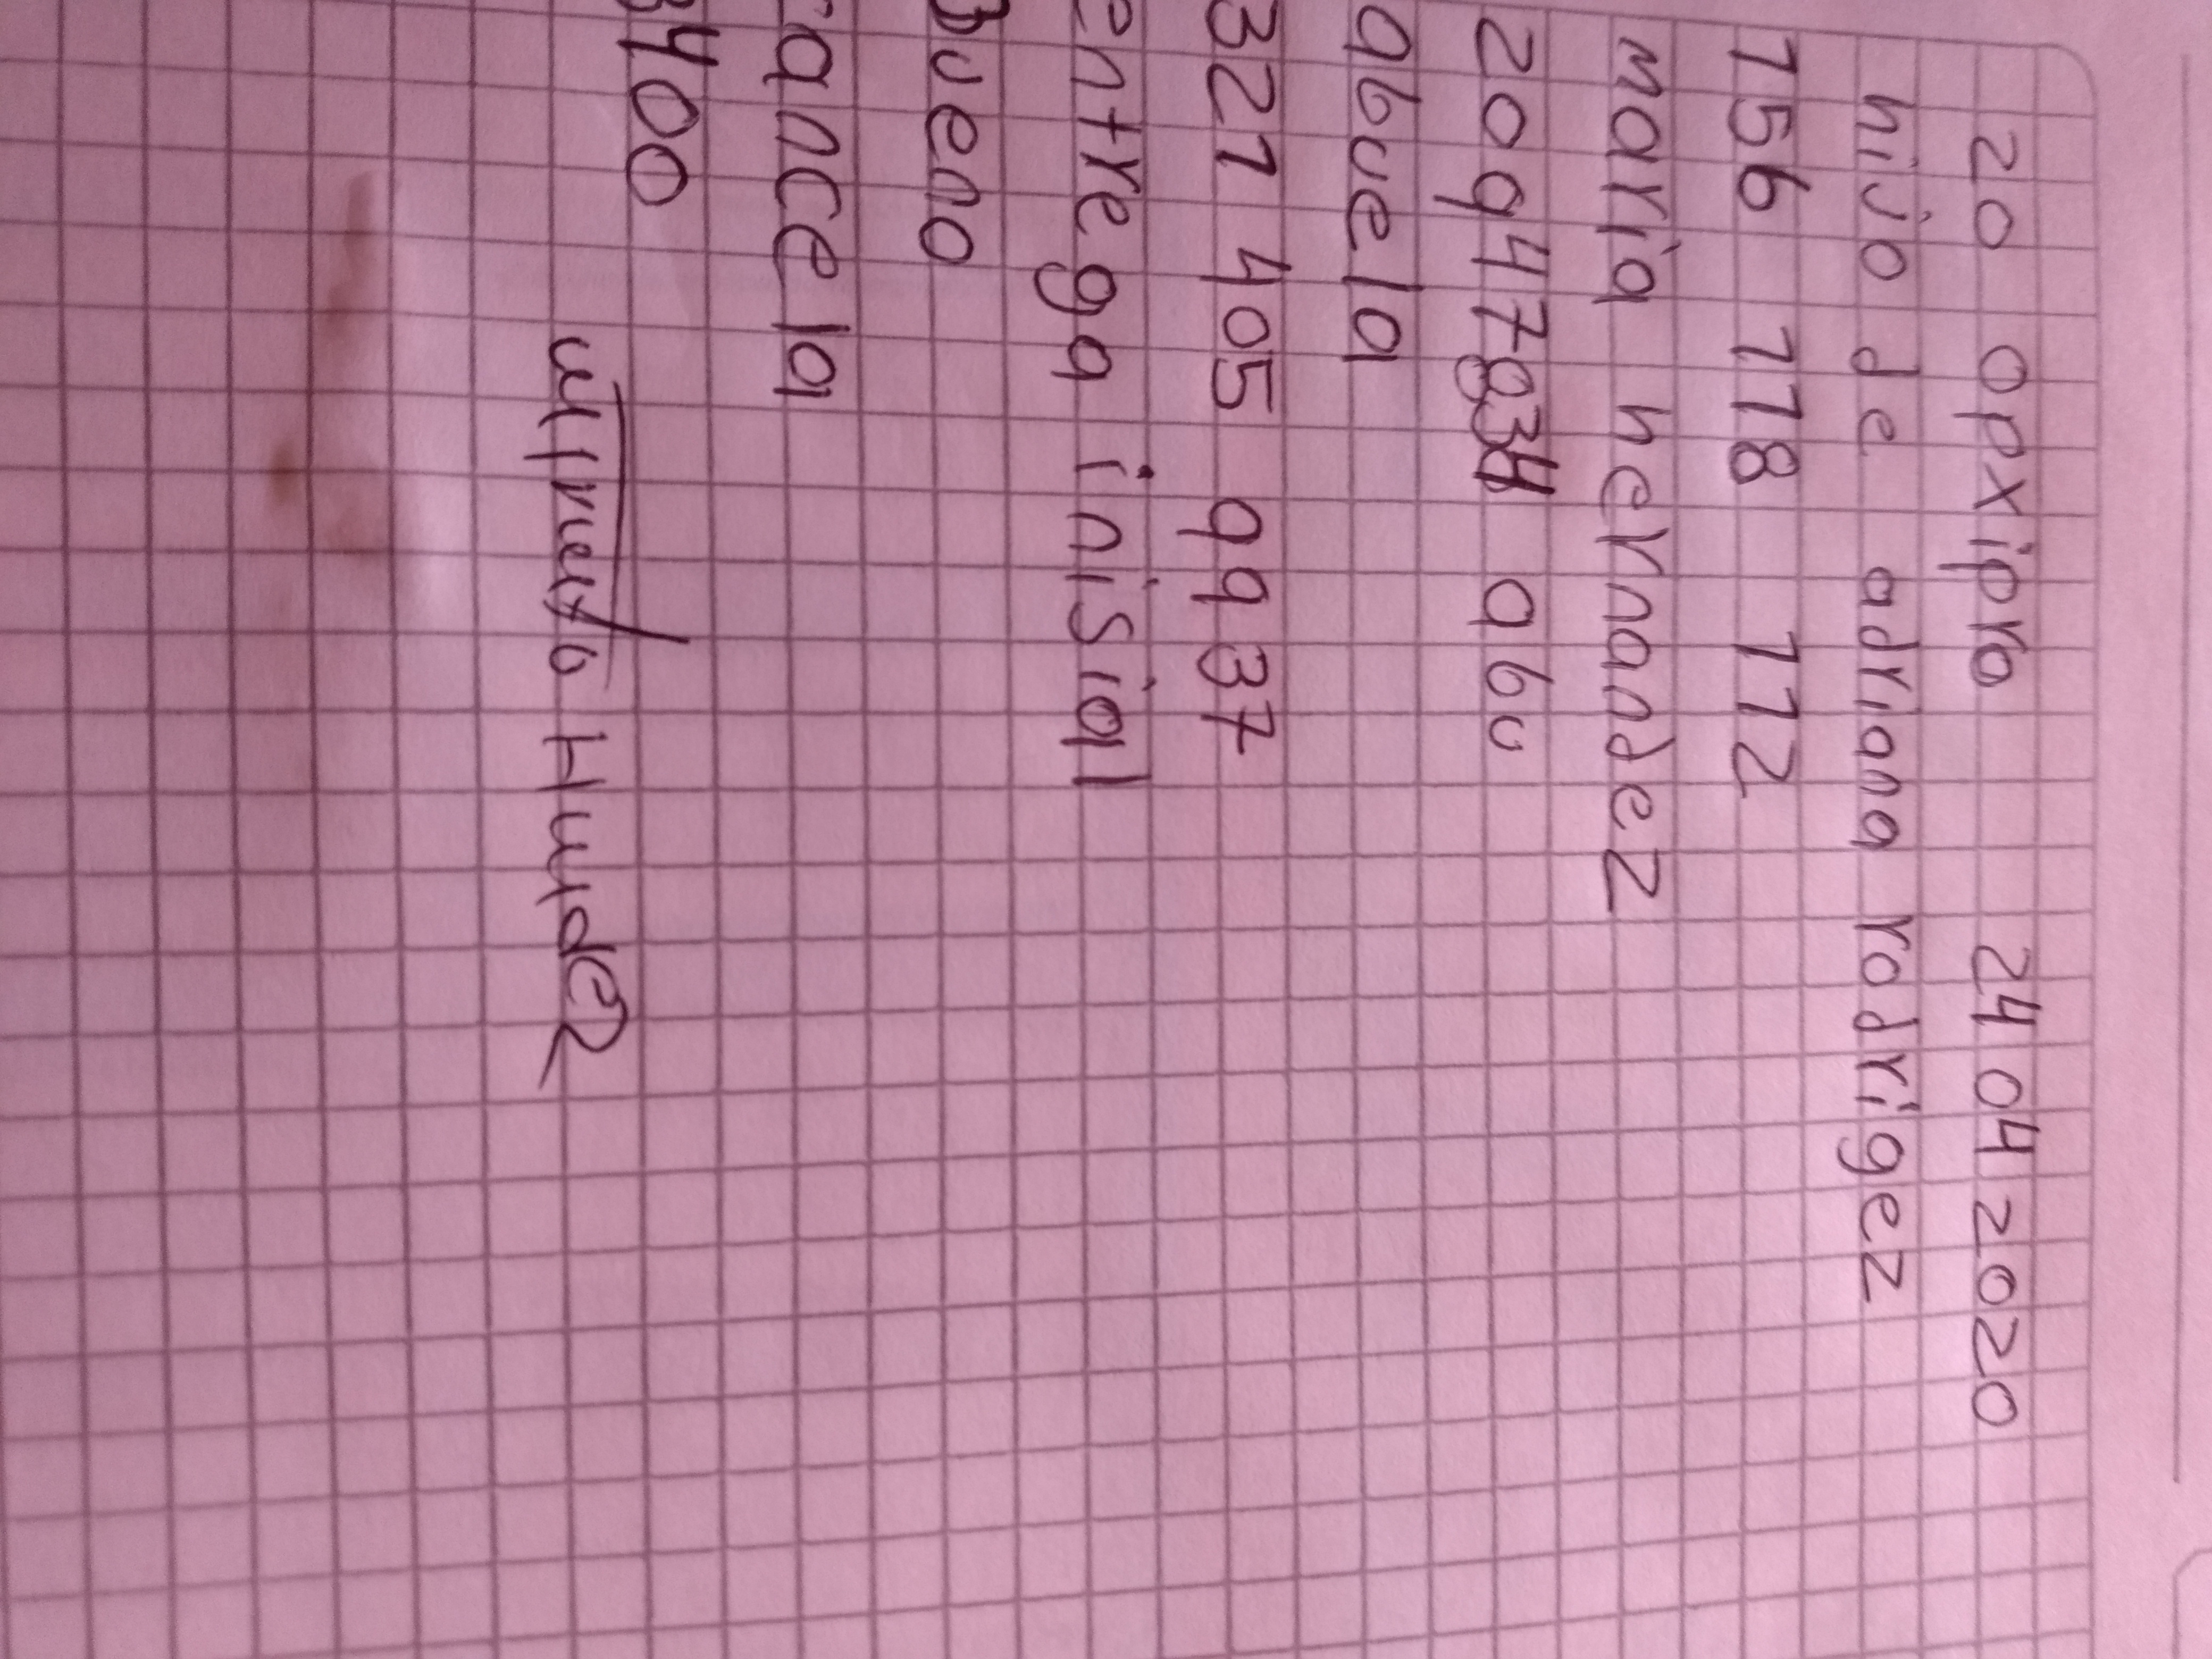 20 opxipro 24 04 2020
hijo de adriana rodrigez
1156 118 112
maria hernandez
209478034 abu
abuela
321 405 9937
entrega inisial
Bueno
rancela
3400
Hmdez